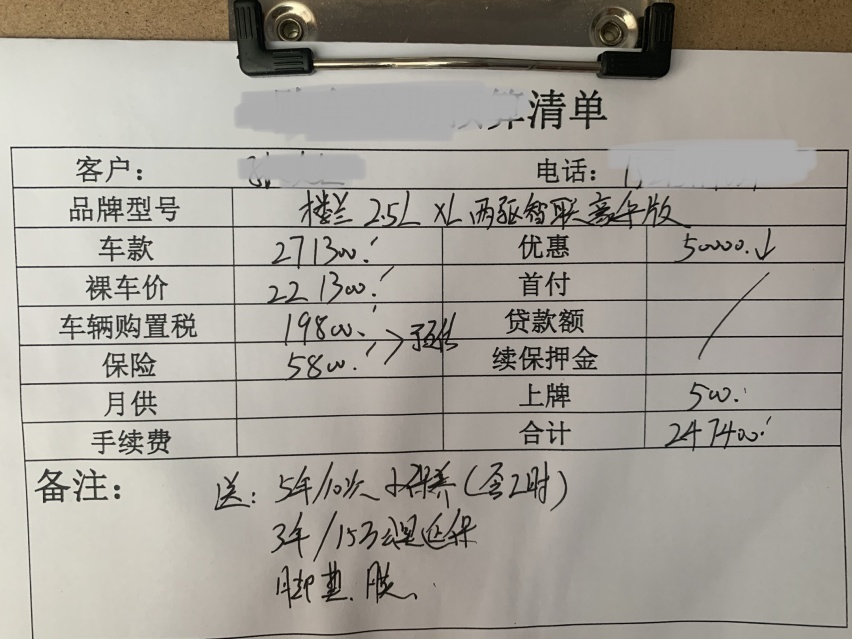 算清单
客户： 电话：
品牌型号 楼兰 2.5L XL 两驱智联豪华版
车款 271300. 优惠 50000.↓
裸车价 221300. 首付
车辆购置税 19800. 贷款额
预估
保险 5800. 续保押金
月供 上牌 500.
手续费 合计 247400.
备注： 送：5年/10次小保养（含工时）
3年/15万公里延保
脚垫、膜、